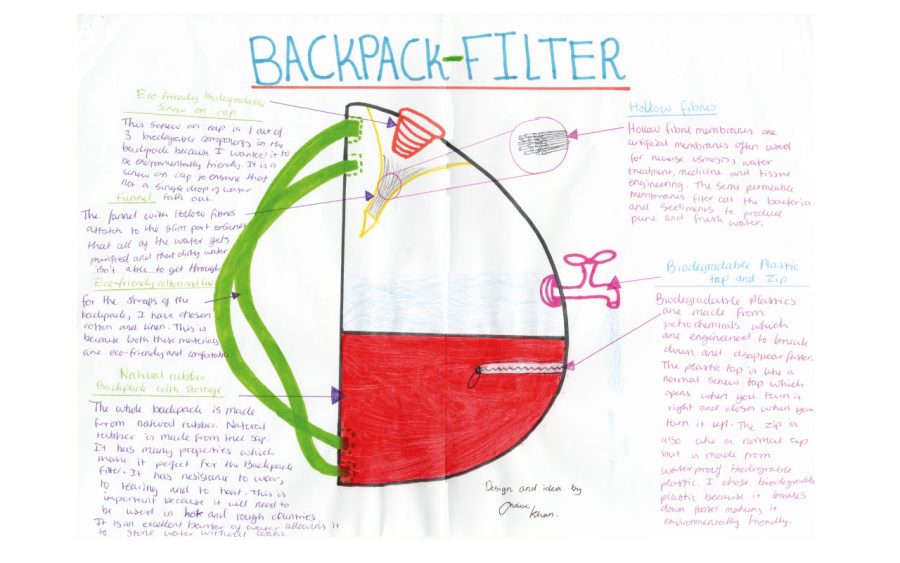 BACKPACK-FILTER
Eco-friendly biodegradable
Screw on cap
This screw on cap is 1 out of
3 biodegradable components in the
backpack because I wanted it to
be environmentally friendly. It is a
screw on cap to ensure that
not a single drop of water
falls out.
Funnel
The funnel with Hollow fibres
attatch to the slim part ensures
that all of the water gets
purified and that dirty water
isn't able to get through
Eco-friendly cotton and linen
for the straps of the
backpack, I have chosen
cotton and linen. This is
because both these materials
are eco-friendly and comfortable.
Natural rubber
Backpack with storage
The whole backpack is made
from natural rubber. Natural
rubber is made from tree sap.
It has many properties which
make it perfect for the Backpack
filter. It has resistance to wear,
to tearing and to heat. This is
important because it will need to
be used in hot and rough countries
It is an excellent barrier of water allowing it
to store water without leaks.
Hollow fibres
Hollow fibre membranes are
artificial membranes often used
for reverse osmosis, water
treatment, medicine and tissue
engineering. The semi permeable
membranes filter out the bacteria
and sediments to produce
pure and fresh water.
Biodegradable Plastic
tap and Zip
Biodegradable Plastics
are made from
petrochemicals which
are engineered to break
down and disappear faster.
The plastic tap is like a
normal screw tap which
opens when you turn it
right and closes when you
turn it left. The zip is
also like a normal zip
but is made from
waterproof biodegradable
plastic. I chose biodegradable
plastic because it breaks
down faster making it
environmentally friendly.
Design and idea by
Khan.